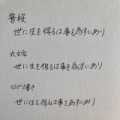 普段
世に生を得るは事を為すにあり
丸文字
世に生を得るは事を為すにあり
世に生を得るは事を為すにあり